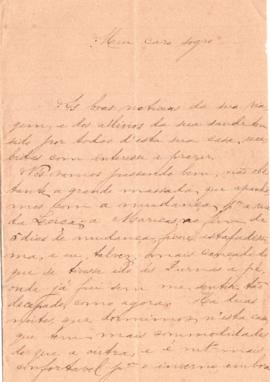 Meu caro sogro
As boas noticias da sua via
gem, e dos allivios da sua saude tem
sido por todos d'esta sua casa, rece
bidas com interesse e prazer.
Nós vamos passando bem, não obs
tante a grande massada, que apanha
mos com a mudança pª a rua
da; a Maricas, ao fim de
5 dias de mudança, ficou estafadissi
ma, e eu, talvez mais cançado do
que se tivesse ido ás Furnas a pé,
onde já fui sem me sentir tão
cançado, como agora. Ha duas
noites, que dormimos n'esta casa
que tem mais commodidades
do que a outra, e é mtº mais
confortavel pª o inverno